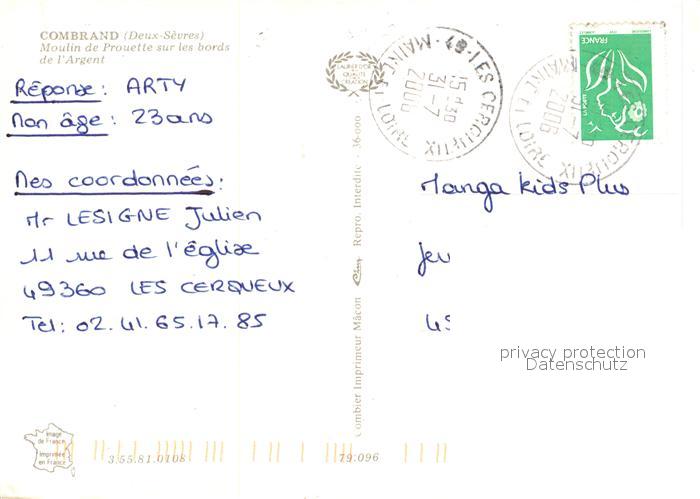 COMBRAND (Deux-Sèvres)
Moulin de Prouette sur les bords
de l'Argent
Réponse : ARTY
Mon âge : 23 ans
Mes coordonnées :
Mr LESIGNE Julien
11 rue de l'église
49360 LES CERQUEUX
Tel : 02.41.65.17.85
Image
de France
Imprimée
en France
3.55.81.0108
79.096
Combier Imprimeur Mâcon
Repro. Interdite - 36-000
49-LES CERQUEUX
15 H 30
31-7
2006
MAINE ET LOIRE
FRANCE
Manga Kids Plus
Jeu
privacy protection
Datenschutz